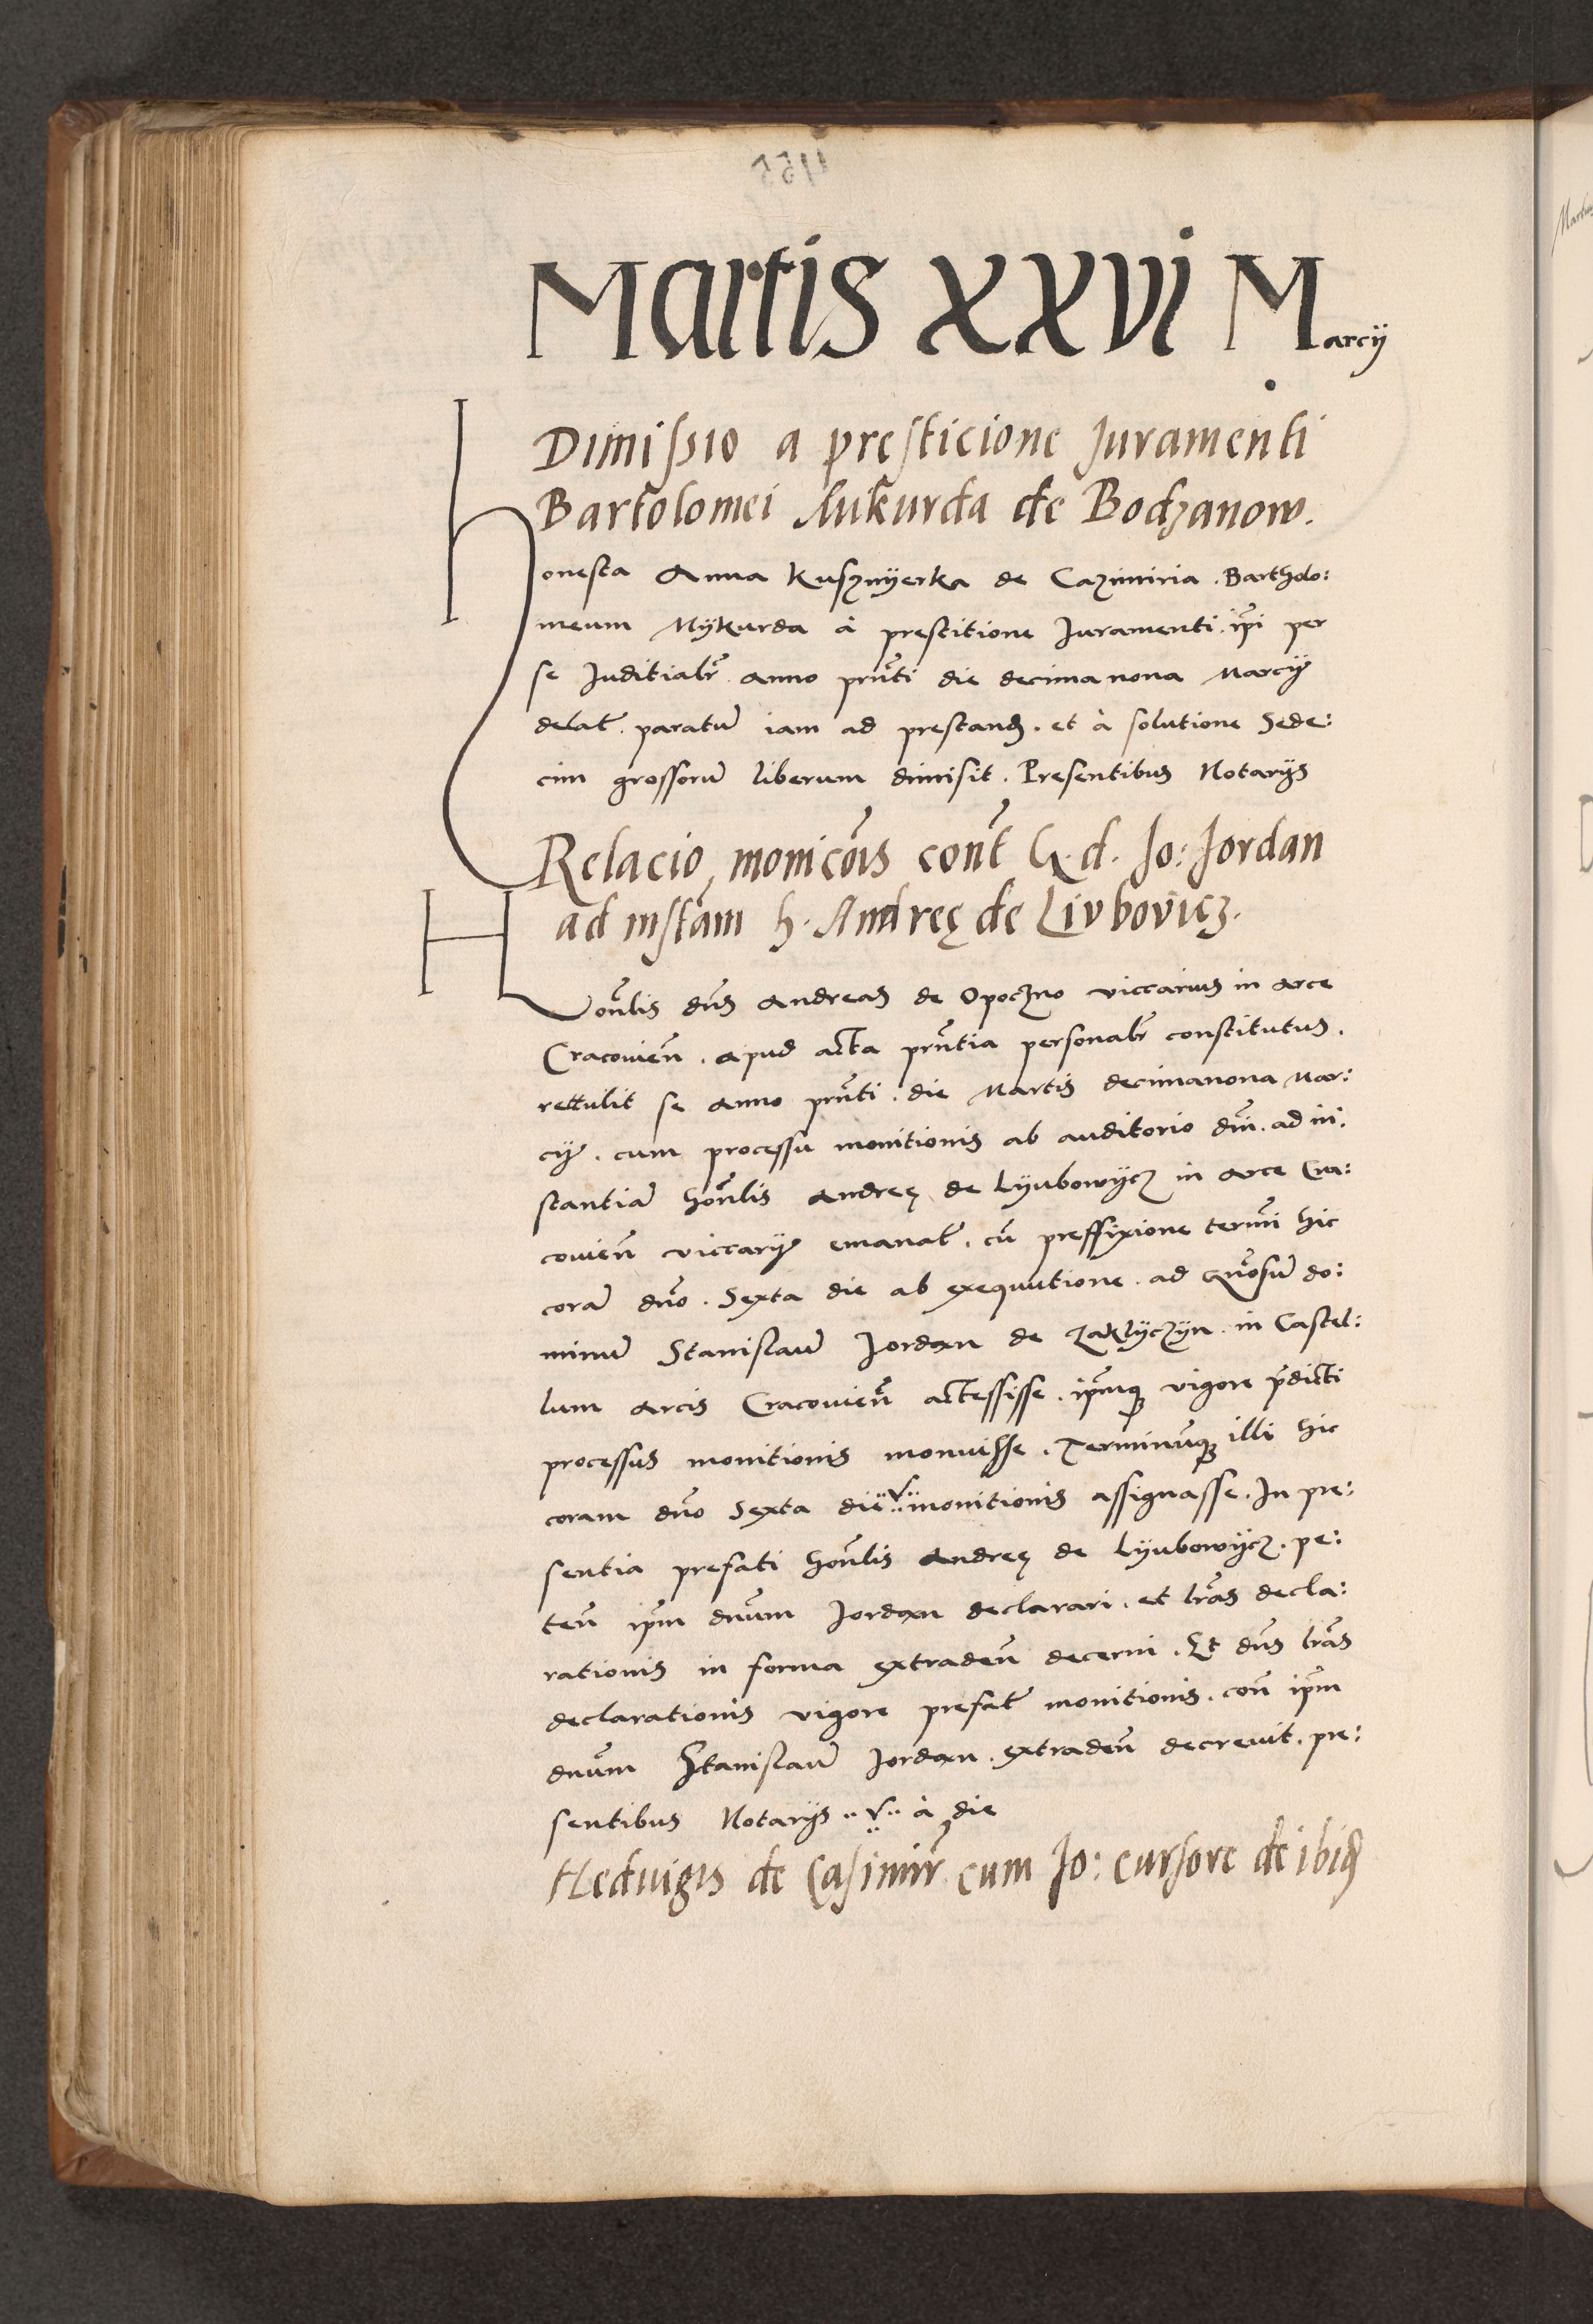 Martis XXVI Marcij
Dimissio a presticione Juramenti
Bartolomei Mikurda de Bodzanow.
Honesta Anna Kusznyerka de Cazimiria. Bartholo:
meum Mykurda à prestitione Juramenti. ip̃i per
se Juditialr̃ anno prñti die decima nona Marcij
delat̃. paratũ iam ad prestand. et à solutione Sede:
cim grossorũ liberum dimisit. Presentibus Notarijs
Relacio monicõis cont̃ G. d. Jo: Jordan
ad instãm h. Andreę de Liubovicz.
Honõlis dñs Andreas de Opoczno viccarius in arce
Cracovieñ. apud acta prñtia personalr̃ constitutus.
retulit se anno prñti. die Martis decimanona Mar:
cij. cum processu monitionis ab auditorio dñi. ad in:
stantiã honõlis Andreę de Lyubowycz in arce Cra:
covieñ viccarij emanat̃. cũ preffixione termĩ hic
corã dño. Sexta die ab exequutione. ad Gñosũ do:
minũ Stanislaũ Jordan de Zaklyczyn. in Castel:
lum arcis Cracovieñ actessisse. ip̃mq3 vigore p̃dicti
processus monitionis monuisse. Terminũq3 illi hic
coram dño Sexta die ..v.. monitionis assignasse. In pre:
sentia prefati honõlis Andreę de Lyubowycz. pe:
teñ ip̃m dñum Jordan declarari. et lr̃as decla:
rationis in forma extradeñ decerni. Et dñs lr̃as
declarationis vigore prefat̃ monitionis. coñ ip̃m
dñum Stanislaũ Jordan. extradeñ decrevit. pre:
sentibus Notarijs ..v.. à die
Heduigis de Casimir̃ cum Jo: cursore de ibid